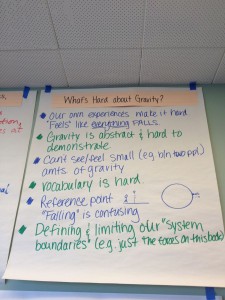 What's Hard about Gravity?
Our own experiences make it hard
"Feels" like everything FALLS.
Gravity is abstract & hard to
demonstrate
Can't see/feel small (e.g. b/n two ppl)
amts of gravity
Vocabulary is hard
Reference point
"Falling" is confusing
Defining & limiting our "system
boundaries" (e.g. just the forces on this body)